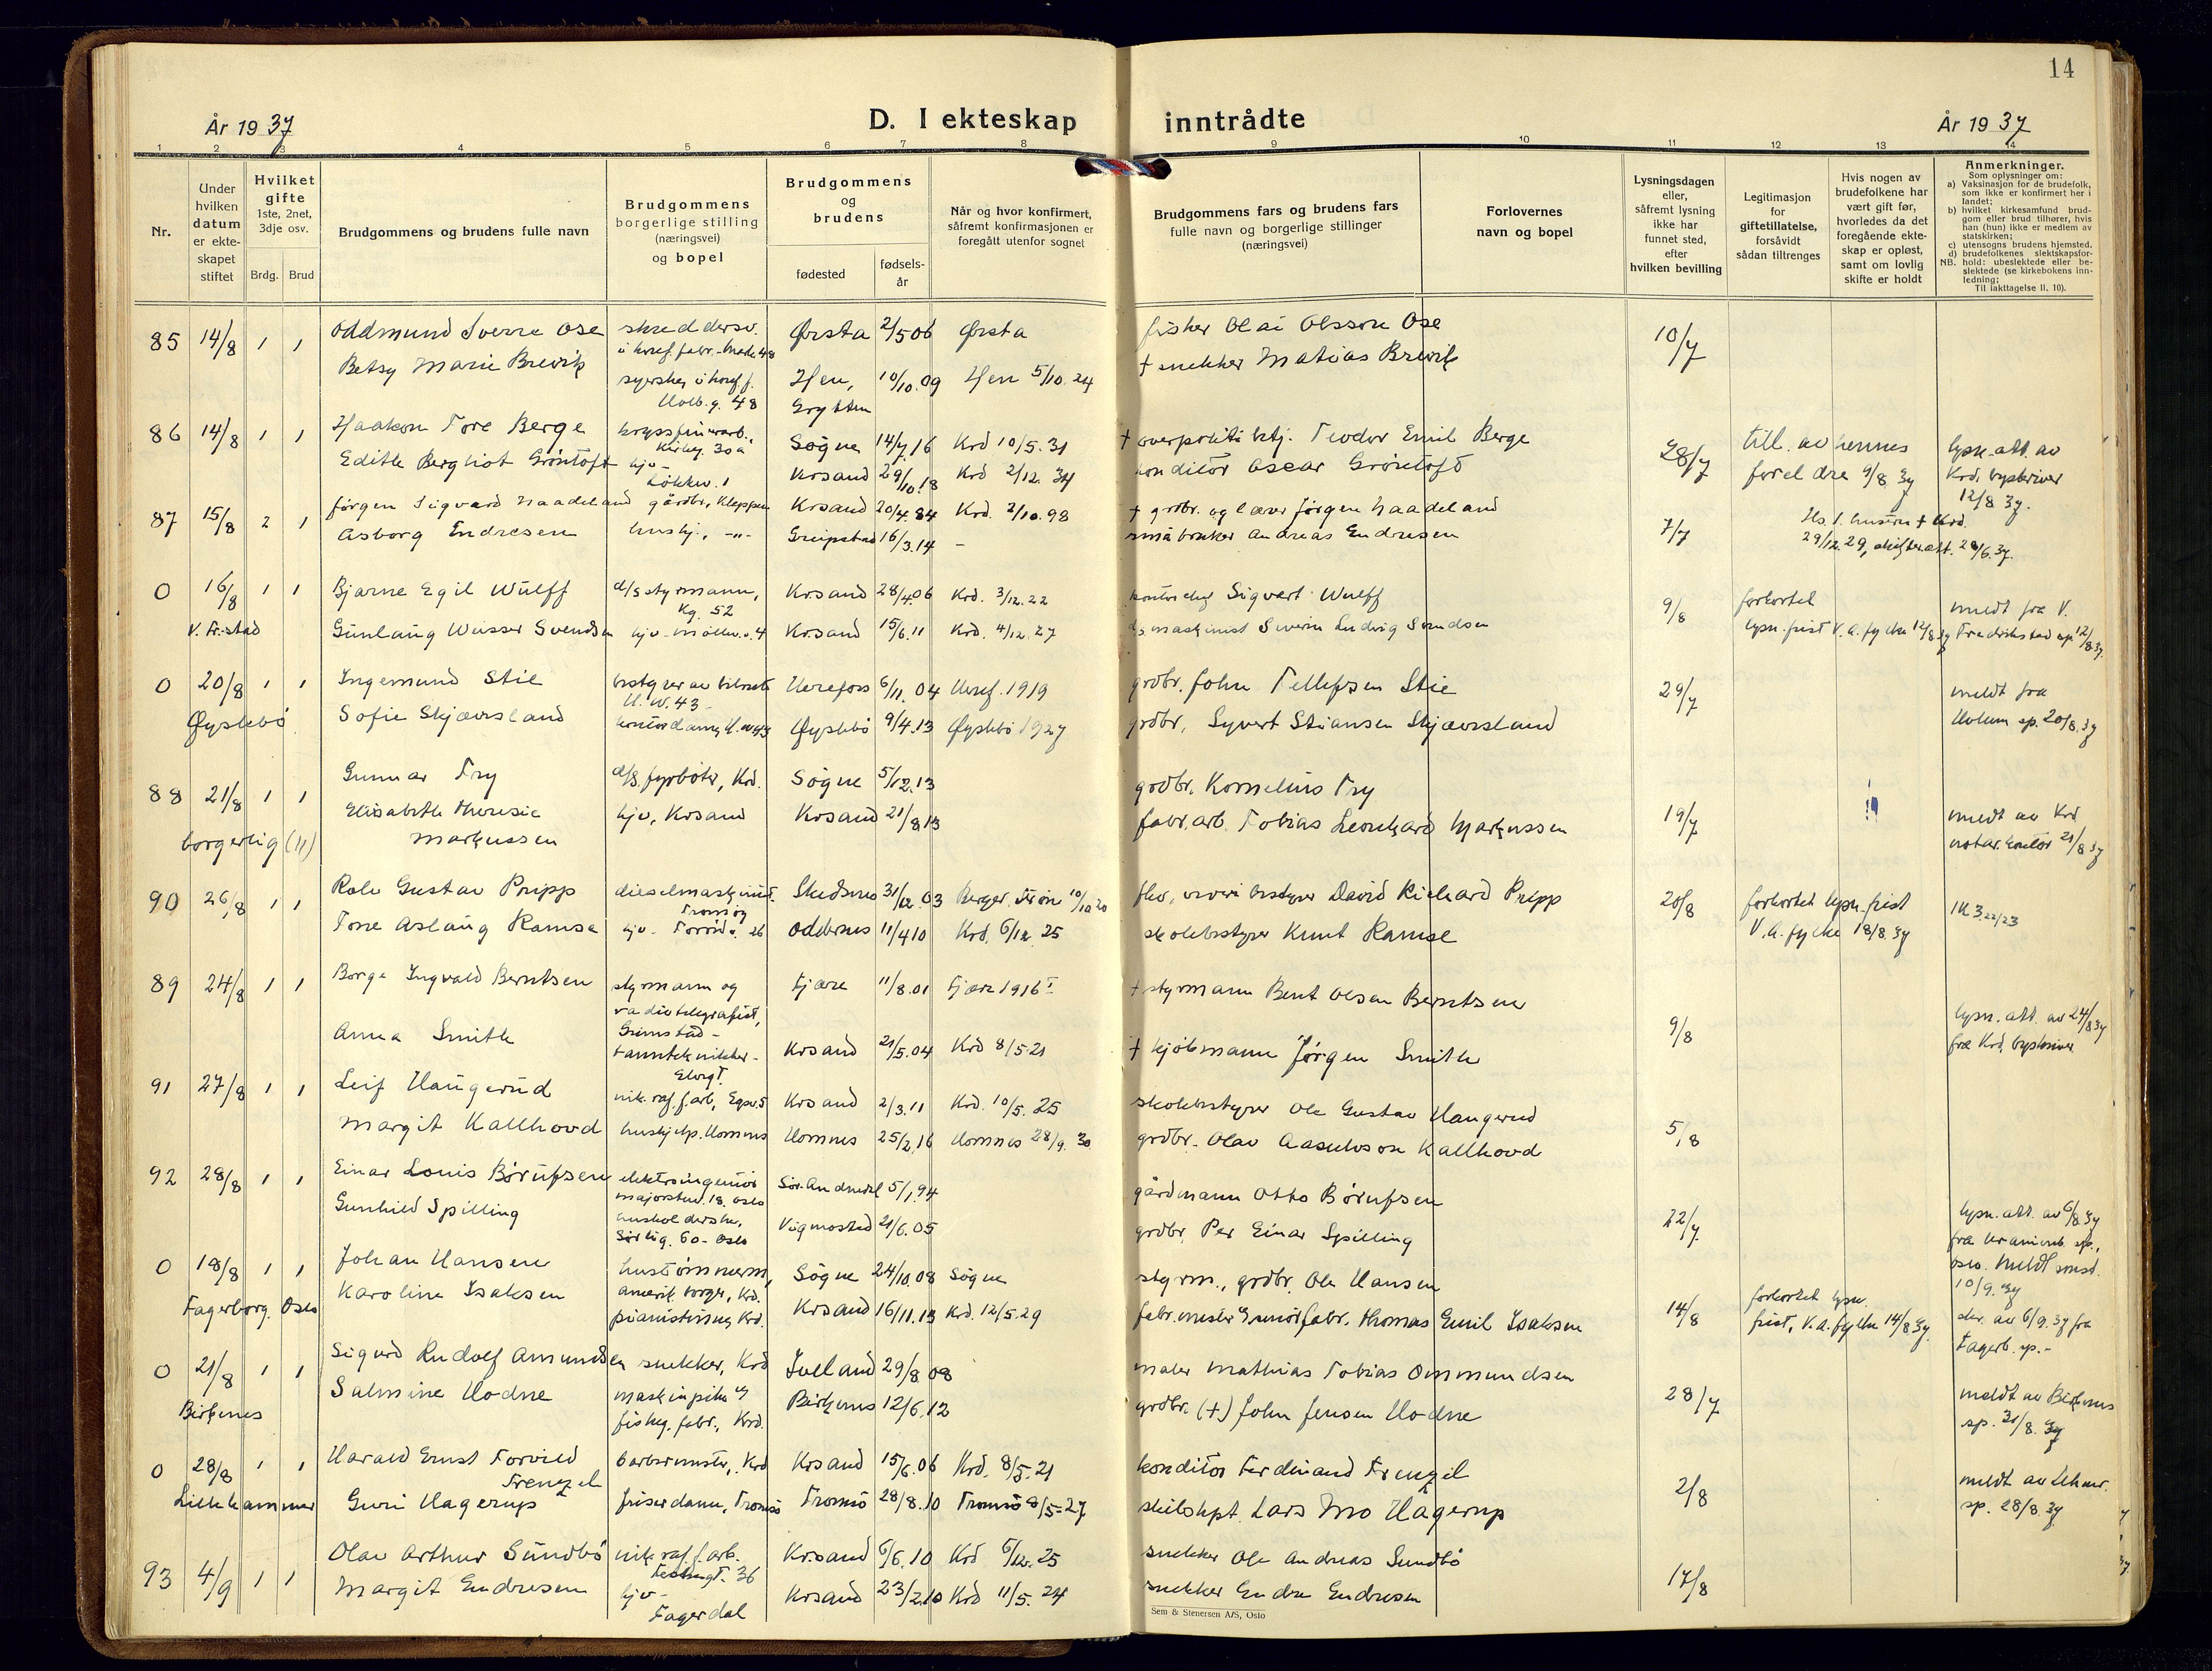 14
År 1937
D. I ekteskap
inntrådte
År 1937
1 2 3 4 5 6 7 8 9 10 11 12 13 14
Nr.
Under
hvilken
datum
er ekte-
skapet
stiftet
Hvilket
gifte
1ste, 2net,
3dje osv.
Brdg. Brud
Brudgommens og brudens fulle navn
Brudgommens
borgerlige stilling
(næringsvei)
og bopel
Brudgommens
og
brudens
fødested
fødsels-
år
Når og hvor konfirmert,
såfremt konfirmasjonen er
foregått utenfor sognet
Brudgommens fars og brudens fars
fulle navn og borgerlige stillinger
(næringsvei)
Forlovernes
navn og bopel
Lysningsdagen
eller,
såfremt lysning
ikke har
funnet sted,
efter
hvilken bevilling
Legitimasjon
for
giftetillatelse,
forsåvidt
sådan tiltrenges
Hvis nogen av
brudefolkene har
vært gift før,
hvorledes da det
foregående ekte-
skap er opløst,
samt om lovlig
skifte er holdt
Anmerkninger.
Som oplysninger om:
a) Vaksinasjon for de brudefolk,
som ikke er konfirmert her i
landet;
b) hvilket kirkesamfund brud-
gom eller brud tilhører, hvis
han (hun) ikke er medlem av
statskirken;
c) utensogns brudens hjemsted.
d) brudefolkenes slektskapsfor-
NB. hold: ubeslektede eller be-
slektede (se kirkebokens inn-
ledning;
Til iakttagelse II, 10).
85 14/8 1 1 Oddmund Sverre Ose Ørsta 2/5 06 Ørsta fisker Olai Olsson Ose 10/7
Betsy Marie Brevik Hen, 10/10.09 Hen 5/10.24 + snekker Matias Brevik
Grytten
86 14/8 1 1 Haakon Tore Berge Søgne 14/7.16 Krd 10/5.31 Teodor Emil Berge 28/7 till. av hennes lysn. att. av
Edith Bergliot Grøntoft Krsand 29/10.18 Krd 2/12.34 konditor Oscar Grøntoft foreldre 9/8 37 Krd. byskriver
12/8 37.
87 15/8 2 1 Jørgen Sigvard Haadeland gårdbr, Kleppen Krsand 20/4.84 Krd. 2/10.98 + grdbr. og lærer Jørgen Haadeland 7/7
Asborg Endresen hushj., -"- Greipstad 16/3.14 - småbruker Andreas Endresen 29/12.29, skifteatt. 28/6.37.
0 16/8 1 1 Bjarne Egil Wulff d/s styrmann, Krsand 28/4.06 Krd. 3/12.22 Sigvart Wulff 9/8 forkortet meldt fra V.
Kg. 52
V. Fr.stad Gunlaug Weisser Svendsen Krsand 15/6.11 Krd. 4/12.27 d/s maskinist Severin Ludvig Svendsen lysn. frist V.A. fylke 12/8 37 Fredrikstad sp. 12/8 37.
0 20/8 1 1 Ingemund Stie Herefoss 6/11.04 Heref. 1919 grdbr. John Tellefsen Stie 29/7 meldt fra
H.W.43-
Øyslebø Sofie Skjævsland Øyslebø 9/4.13 Øyslebø 1927 grdbr. Syvert Stiansen Skjævsland Holum sp. 20/8.37
88 21/8 1 1 Gunnar Try d/s fyrbøter, Krd. Søgne 5/12.13 grdbr. Kornelius Try 19/7 meldt av Krd
Elisabeth Theresie hjv, Krsand Krsand 21/8.13 fabr. arb. Tobias Leonhard Markussen notar. kontor 21/8 37
borgerlig (11) Markussen
90 26/8 1 1 Rolv Gustav Pripp dieselmaskinist. Skedsmo 31/12.03 10/10 20 David Richard Pripp 20/8 forkortet lysn. frist
Tore Aslaug Ramse hjv- 26 Oddernes 11/4 10 Krd. 6/12.25 skolebestyrer Knut Ramse V.A. fylke 18/8.37
89 24/8 1 1 Borge Ingvald Berntsen styrmann og Fjære 11/8.01 Fjære 1916 + styrmann Bent Olsen Berntsen 9/8 lysn. att. av 24/8 37
radiotelegrafist,
Grimstad-
Anna Smith tanntekniker- Krsand 21/5.04 Krd 8/5.21 + kjøbmann Jørgen Smith fra Krd. byskriver
Elvegt.
91 27/8 1 1 Leif Haugerud nik. raf. f. arb, Egsv. 5 Krsand 2/3.11 Krd. 10/5.25 skolebestyrer Ole Gustav Haugerud 5/8
Margit Kallhovd hushjelp. Homnes Homnes 25/2.16 Homnes 28/9.30 grdbr. Olav Aasulvson Kallhovd
92 28/8 1 1 Einar Louis Børufsen elektroingeniør Sør-Andneset 5/1.94 gårdmann Otto Børufsen 22/7 lysn. att. av 6/8 37
Majorstuv. 18, Oslo
Gunhild Spilling husholderske, Vigmostad 21/6.05 grdbr. Per Einar Spilling fra Uranienb. sp.,
Sørlig. 60 - Oslo Oslo. Meldt smst. 10/9.37
0 18/8 1 1 Johan Hansen hustømmerm, Søgne 24/10.08 Søgne styrm., grdbr. Ole Hansen 14/8 forkortet lysn.
amerik. borger, Krd.
Fagerborg. Oslo Karoline Isaksen pianistinne, Krd. Krsand 16/11.13 Krd. 12/5.29 Thomas Emil Isaksen frist, V.A. fylke 14/8 37. skr. av 6/9.37 fra
Fagerb. sp.-
0 21/8 1 1 Sigurd Rudolf Amundsen snekker, Krd Iveland 29/8 08 maler Mathias Tobias Ommundsen 28/7 meldt av Birkenes
Birkenes Salmine Hodne maskinpike Birkenes 12/6.12 grdbr. (+) John Jensen Hodne sp. 31/8.37
fiskeg. fabr., Krd.
0 28/8 1 1 Harald Ernst Torvild barbermester, Krd Krsand 15/6.06 Krd. 8/5.21 konditor Ferdinand Frenzel 2/8 meldt av Lhmr.
Frenzel
Lillehammer Guri Hagerup friserdame, Tromsø Tromsø 28/8.10 Tromsø 8/5-27 skibskpt. Lars Mo Hagerup sp. 28/8.37
93 4/9 1 1 Olav Arthur Sundbø nik. raf. f. arb. Krsand 6/6.10 Krd 6/12.25 snekker Ole Andreas Sundbø 17/8
Festningsgt. 36
Margit Endresen hjv- Krsand 23/2.10 Krd 11/5.24 snekker Endre Endresen
Fagerdal
Sem & Stenersen A/S, Oslo